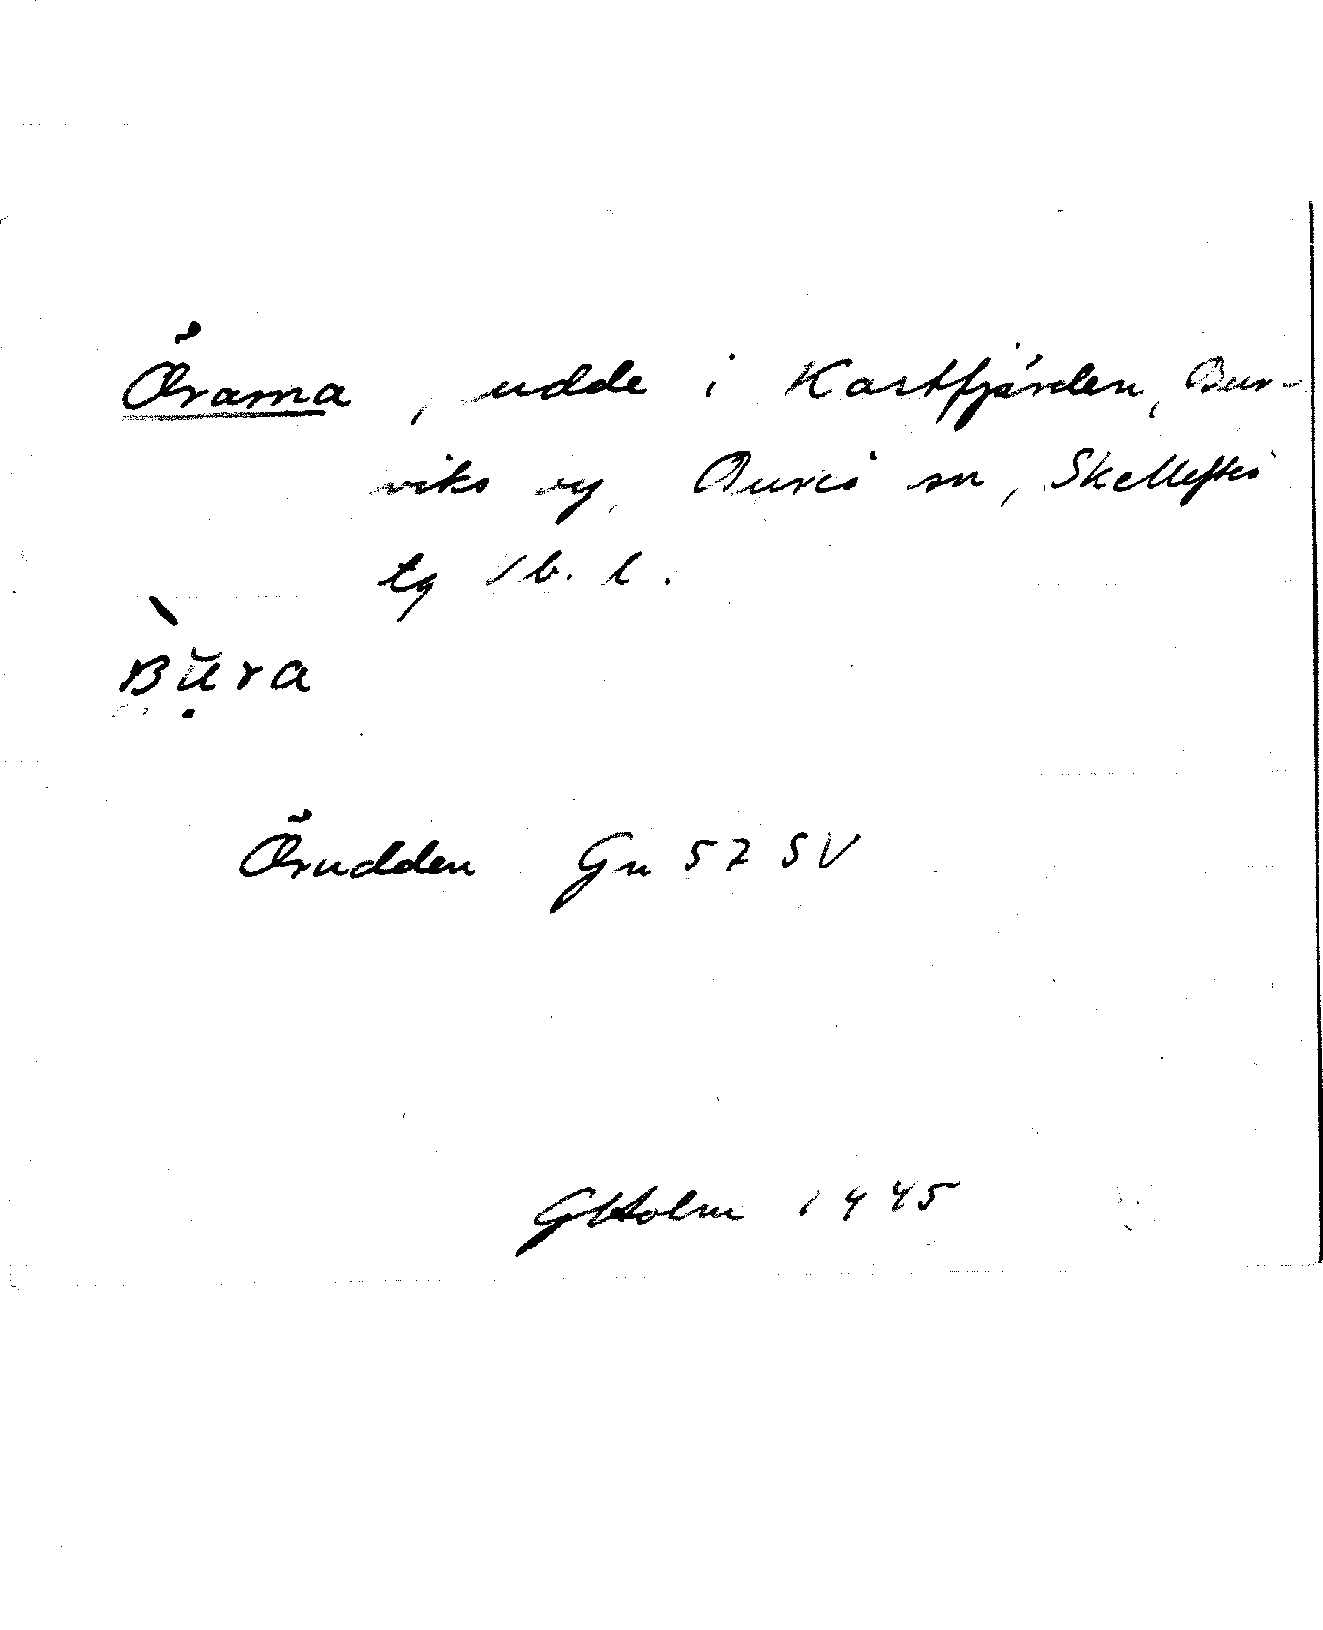 Örama, udde i Kastfjärden, Bur-
viks by, Bureå sn, Skellefteå
tg Vb. l.
Bŭra
Örudden Gn 57 SV
GHolm 1945